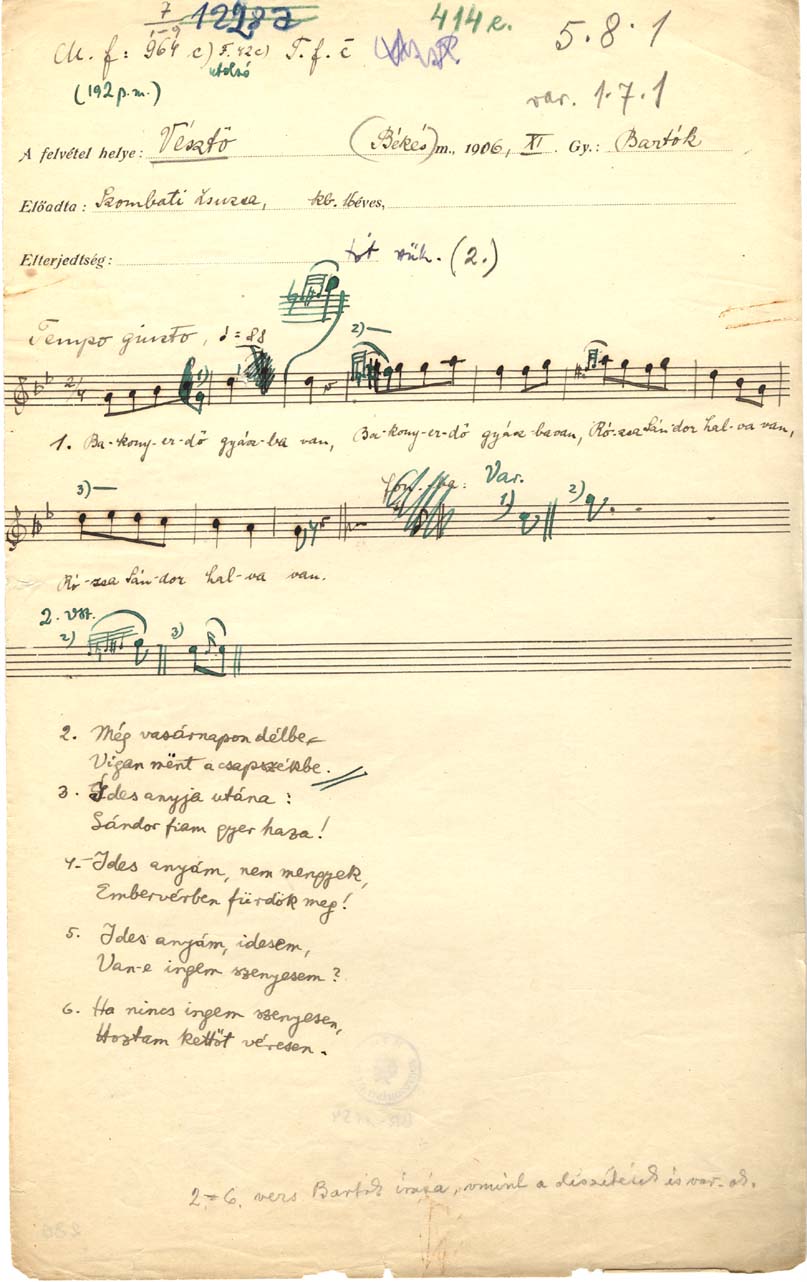 7 1298a 414e.
1-9
M. f: 964 c) T. f. č 5.8.1
utolsó
(192 p.m.) var. 1.7.1
A felvétel helye: Vésztő (Békés) m., 1906, XI. Gy.: Bartók
Előadta: Szombati Zsuzsa, kb. 16 éves,
Elterjedtség: tót (2.)
Tempo giusto, ♩ = 88 2)—
2/4 1)
1. Ba-kony-er-dő gyász-ba van, Ba-kony-er-dő gyász-bavan, Ró-zsa Sán-dor hal-va van,
3)— Var. 1) 2)
Ró-zsa Sán-dor hal-va van.
2. vsz.
2) 3)
2. Még vasárnapon délbe
Vigan mënt a csapszékbe.
3. Ides anyja utána:
Sándor fiam gyer haza!
4. Ides anyám, nem mengyek,
Embervérben fürdök meg!
5. Ides anyám, idesem,
Van-e ingem szenyesem?
6. Ha nincs ingem szenyesen,
Hoztam kettőt véresen.
2-6. vers Bartók írása, vmint a díszítések is var.-ok.